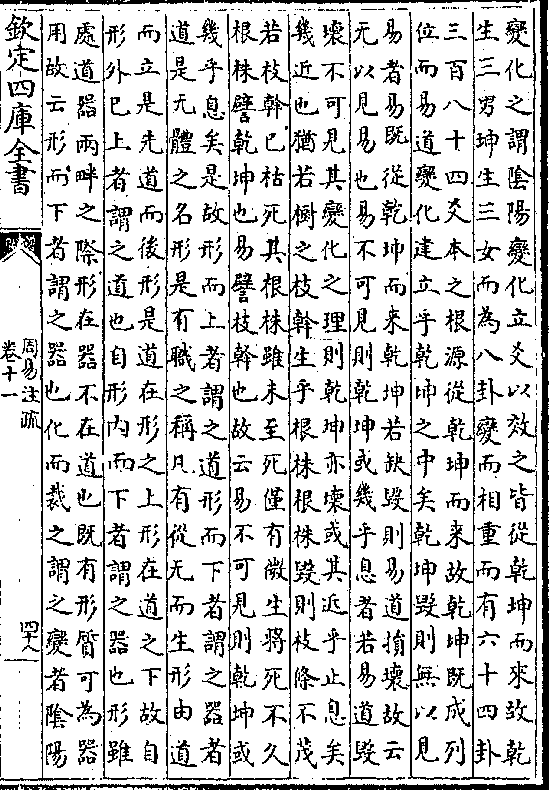 變化之謂陰陽變化立爻以效之皆從乾坤而來故乾
生三男坤生三女而為八卦變而相重而有六十四卦
三百八十四爻本之根源從乾坤而來故乾坤既成列
位而易道變化建立乎乾坤之中矣乾坤毀則無以見
易者易既從乾坤而來乾坤若缺毀則易道損壞故云
无以見易也易不可見則乾坤或幾乎息者若易道毀
壞不可見其變化之理則乾坤亦壞或其近乎止息矣
幾近也猶若樹之枝幹生乎根株根株毀則枝條不茂
若枝幹已枯死其根株雖未至死僅有微生將死不久
根株譬乾坤也易譬枝幹也故云易不可見則乾坤或
幾乎息矣是故形而上者謂之道形而下者謂之器者
道是无體之名形是有職之稱凡有從无而生形由道
而立是先道而後形是道在形之上形在道之下故自
形外已上者謂之道也自形內而下者謂之器也形雖
處道器兩畔之際形在器不在道也既有形質可為器
用故云形而下者謂之器也化而裁之謂之變者陰陽
欽定四庫全書
周易注疏
卷十一
四十八